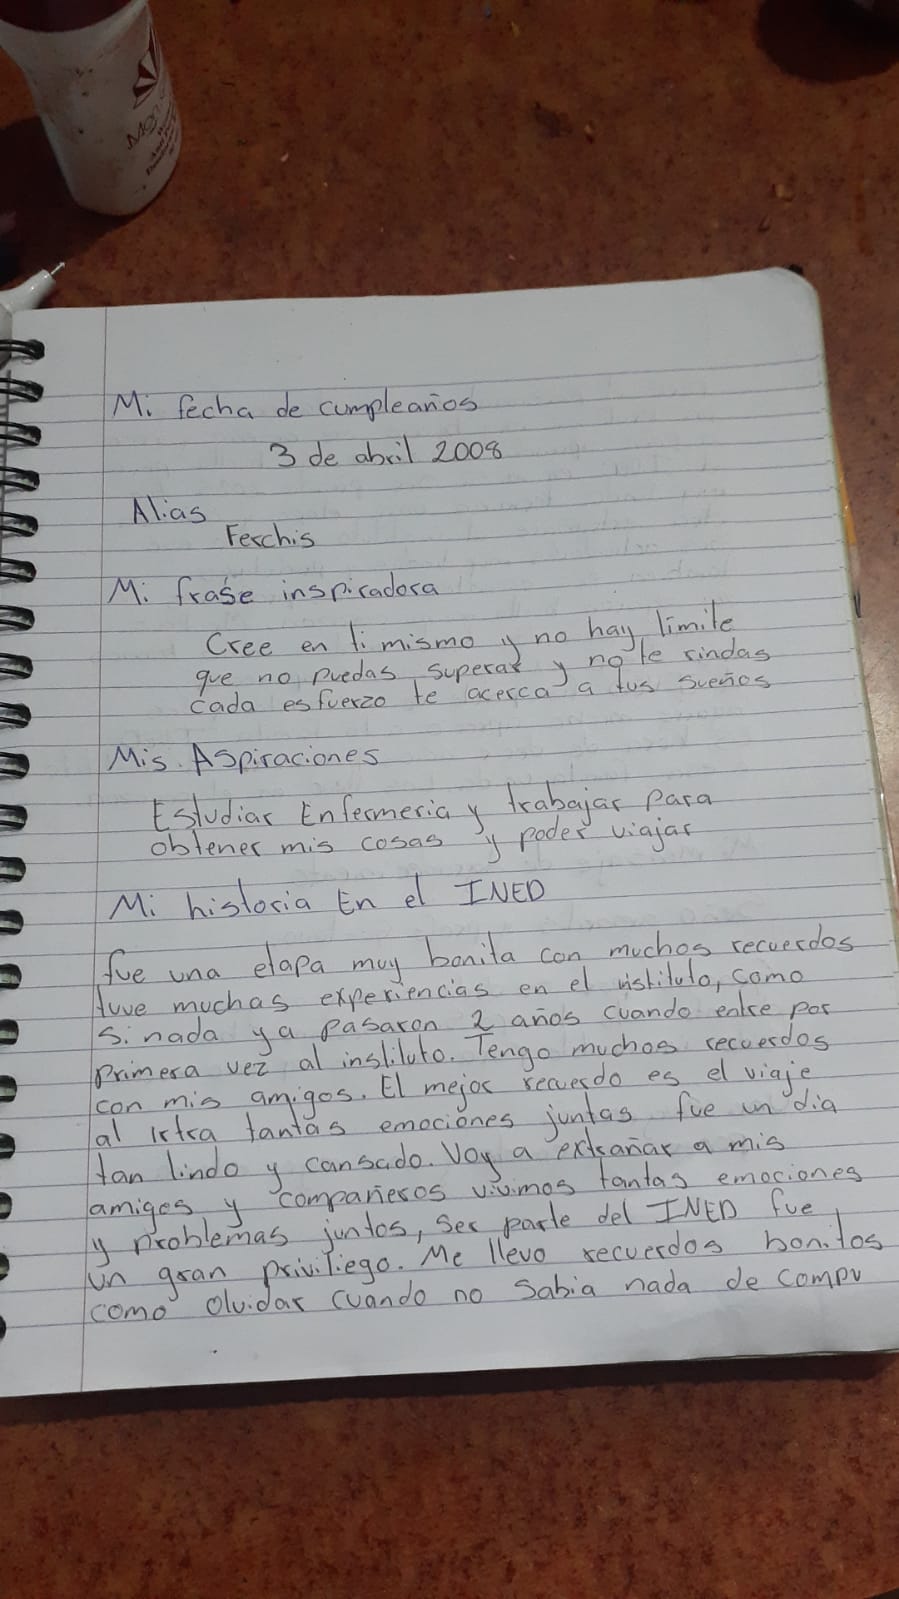 Mi fecha de cumpleaños
3 de abril 2008
Alias
Ferchis
Mi frase inspiradora
Cree en ti mismo y no hay limite
que no puedas superar y no te rindas
cada esfuerzo te acerca a tus sueños
Mis Aspiraciones
Estudiar Enfermeria y trabajar para
obtener mis cosas y poder viajar
Mi historia En el INED
fue una etapa muy bonita con muchos recuerdos
tuve muchas experiencias en el instituto, como
si nada ya pasaron 2 años cuando entre por
primera vez al instituto. Tengo muchos recuerdos
con mis amigos. El mejor recuerdo es el viaje
al Irtra tantas emociones juntas fue un dia
tan lindo y cansado. Voy a extrañar a mis
amigos y compañeros vivimos tantas emociones
y problemas juntos, ser parte del INED fue
un gran priviliego. Me llevo recuerdos bonitos
como olvidar cuando no sabia nada de compu